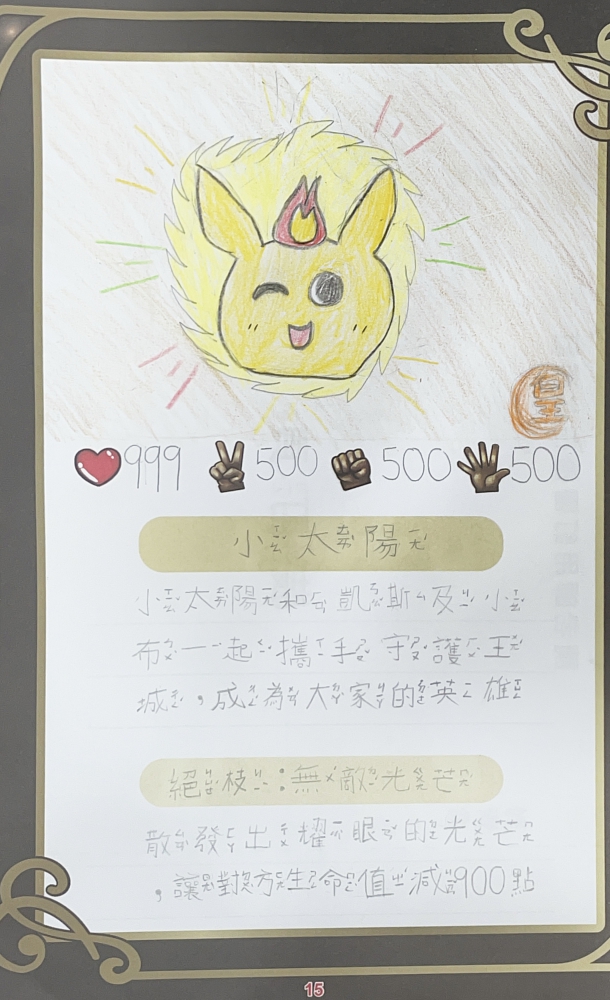 皇
999 500 500 500
小太陽
小太陽和凱斯及小
布一起攜手守護王
城,成為大家的英雄
絕枝:無敵光芒
散發出耀眼的光芒
,讓對方生命值減900點
15